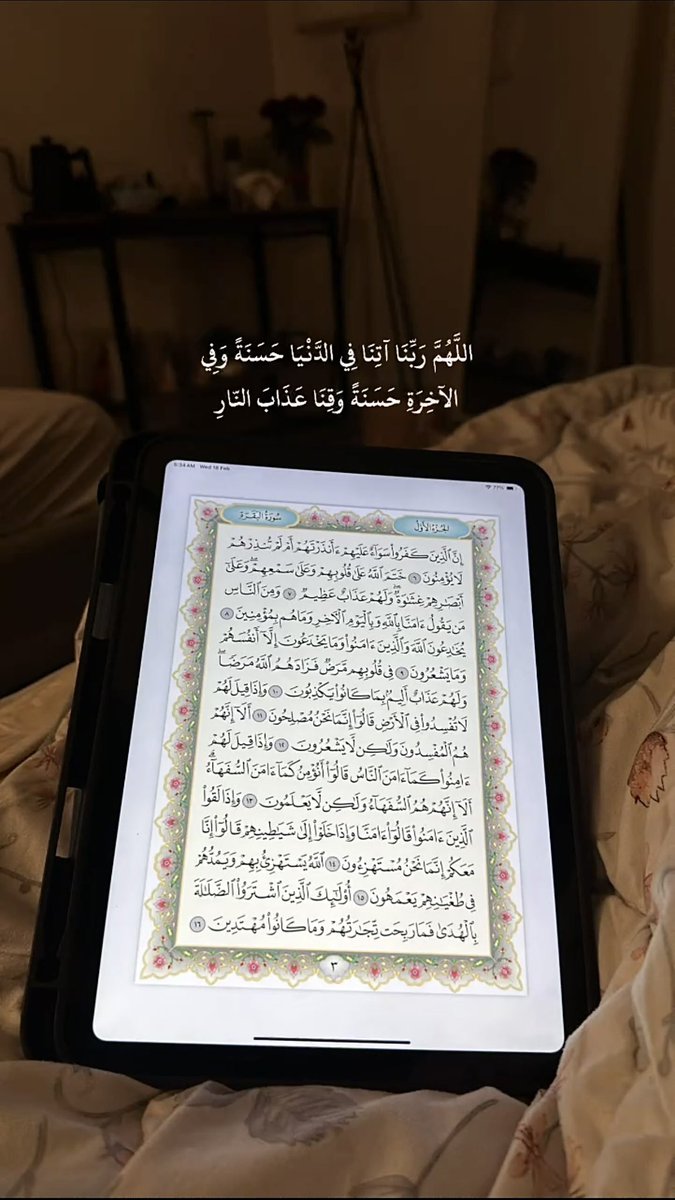 اللَّهُمَّ رَبَّنَا آتِنَا فِي الدَّنْيَا حَسَنَةً وَفِي
الآخِرَةِ حَسَنَةً وَقِنَا عَذَابَ النَّارِ
5:34 AM Wed 18 Feb
77%
الجزء الأول
سورة البقرة
إِنَّ ٱلَّذِينَ كَفَرُوا۟ سَوَآءٌ عَلَيْهِمْ ءَأَنذَرْتَهُمْ أَمْ لَمْ تُنذِرْهُمْ
لَا يُؤْمِنُونَ ٦ خَتَمَ ٱللَّهُ عَلَىٰ قُلُوبِهِمْ وَعَلَىٰ سَمْعِهِمْ ۖ وَعَلَىٰٓ
أَبْصَٰرِهِمْ غِشَٰوَةٌ ۖ وَلَهُمْ عَذَابٌ عَظِيمٌ ٧ وَمِنَ ٱلنَّاسِ
مَن يَقُولُ ءَامَنَّا بِٱللَّهِ وَبِٱلْيَوْمِ ٱلْءَاخِرِ وَمَا هُم بِمُؤْمِنِينَ ٨
يُخَٰدِعُونَ ٱللَّهَ وَٱلَّذِينَ ءَامَنُوا۟ وَمَا يَخْدَعُونَ إِلَّآ أَنفُسَهُمْ
وَمَا يَشْعُرُونَ ٩ فِى قُلُوبِهِم مَّرَضٌ فَزَادَهُمُ ٱللَّهُ مَرَضًا ۖ
وَلَهُمْ عَذَابٌ أَلِيمٌۢ بِمَا كَانُوا۟ يَكْذِبُونَ ١٠ وَإِذَا قِيلَ لَهُمْ
لَا تُفْسِدُوا۟ فِى ٱلْأَرْضِ قَالُوٓا۟ إِنَّمَا نَحْنُ مُصْلِحُونَ ١١ أَلَآ إِنَّهُمْ
هُمُ ٱلْمُفْسِدُونَ وَلَٰكِن لَّا يَشْعُرُونَ ١٢ وَإِذَا قِيلَ لَهُمْ
ءَامِنُوا۟ كَمَآ ءَامَنَ ٱلنَّاسُ قَالُوٓا۟ أَنُؤْمِنُ كَمَآ ءَامَنَ ٱلسُّفَهَآءُ ۗ
أَلَآ إِنَّهُمْ هُمُ ٱلسُّفَهَآءُ وَلَٰكِن لَّا يَعْلَمُونَ ١٣ وَإِذَا لَقُوا۟
ٱلَّذِينَ ءَامَنُوا۟ قَالُوٓا۟ ءَامَنَّا وَإِذَا خَلَوْا۟ إِلَىٰ شَيَٰطِينِهِمْ قَالُوٓا۟ إِنَّا
مَعَكُمْ إِنَّمَا نَحْنُ مُسْتَهْزِءُونَ ١٤ ٱللَّهُ يَسْتَهْزِئُ بِهِمْ وَيَمُدُّهُمْ
فِى طُغْيَٰنِهِمْ يَعْمَهُونَ ١٥ أُو۟لَٰٓئِكَ ٱلَّذِينَ ٱشْتَرَوُا۟ ٱلضَّلَٰلَةَ
بِٱلْهُدَىٰ فَمَا رَبِحَت تِّجَٰرَتُهُمْ وَمَا كَانُوا۟ مُهْتَدِينَ ١٦
٣